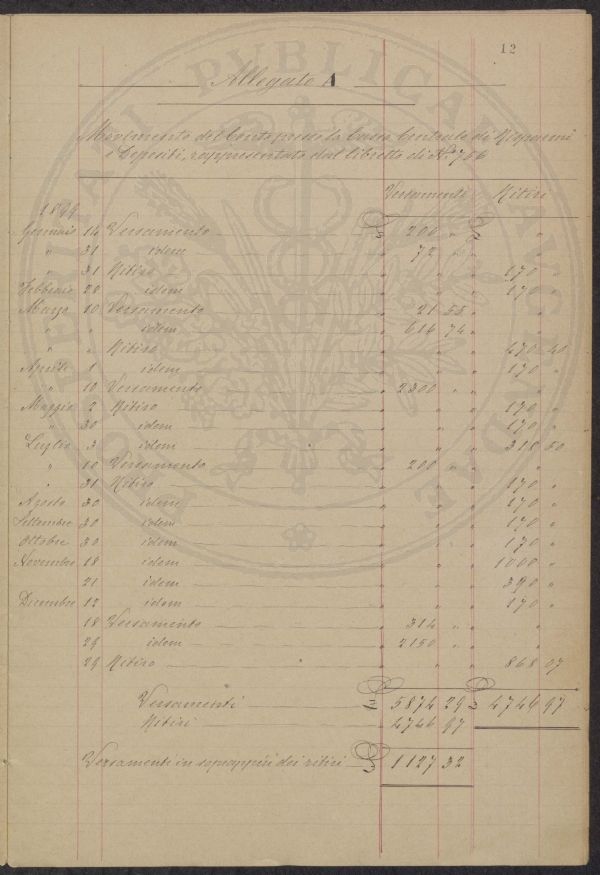 12
Allegato A
Movimento del Conto presso la Cassa Centrale di Risparmi
e Depositi, rappresentato dal libretto di N.° 706
Versamenti Ritiri
1899
Gennaio 14 Versamento 200 " "
" 31 idem 72 "
" 31 Ritiro " " 170 "
Febbraio 28 idem " " 170 "
Marzo 10 Versamento 21 55 "
" " idem 616 74 "
" " Ritiro " " 470 40
Aprile 1 idem " " 170 "
" 10 Versamento 2300 " "
Maggio 2 Ritiro " " 170 "
" 30 idem " " 170 "
Luglio 3 idem " " 318 50
" 10 Versamento 200 " "
" 31 Ritiro " " 170 "
Agosto 30 idem " " 170 "
Settembre 30 idem " " 170 "
Ottobre 30 idem " " 170 "
Novembre 18 idem " " 1000 "
21 idem " " 390 "
Dicembre 12 idem " " 170 "
18 Versamento 314 " "
29 idem 2150 " "
29 Ritiro " " 868 07
Versamenti £ 5874 29 £ 4746 97
Ritiri 4746 97
Versamenti in soprappiù dei ritiri £ 1127 32